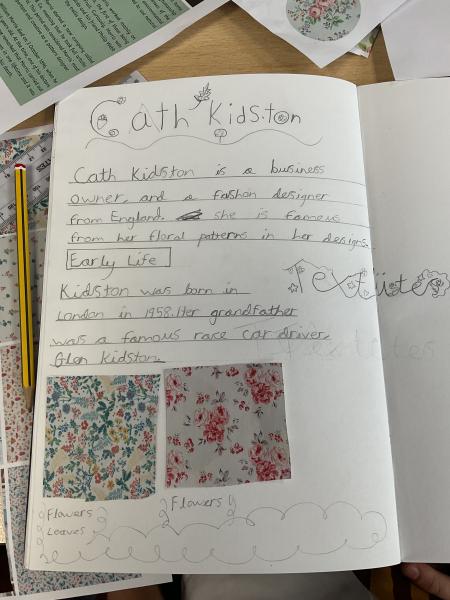 Cath Kidston
Cath Kidston is a business
owner, and a fashon designer
from England. she is famous
from her floral patterns in her designs.
Early Life
Kidston was born in
London in 1958. Her grandfather
was a famous race car driver,
Glen Kidston.
Textiles
Flowers
Leaves
Flowers